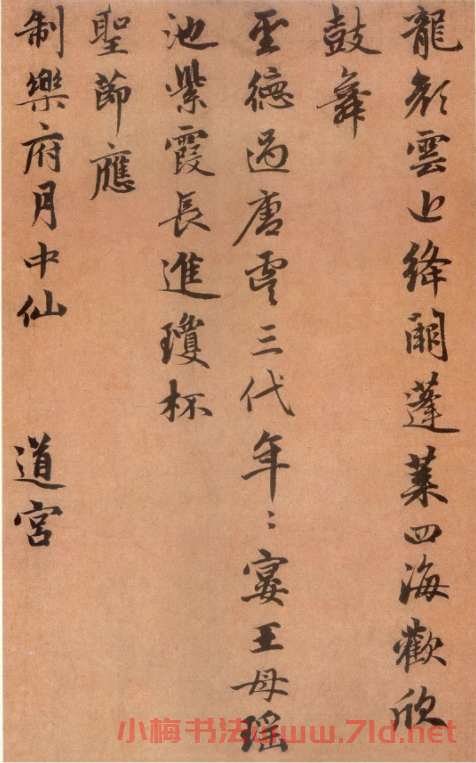 龍彩雲近絳闕蓬萊四海歡欣
鼓舞
聖德過唐虞三代年〻宴王母瑤
池紫霞長進瓊杯
聖節應
制樂府月中仙 道宮
小梅书法www.7ld.net